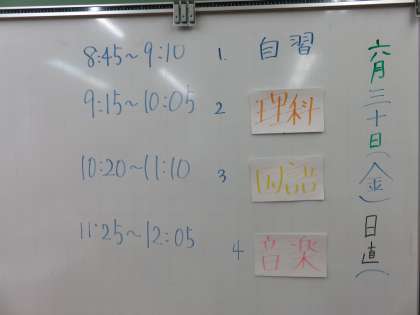 六月三十日(金)日直(
8:45~9:10 1. 自習
9:15~10:05 2 理科
10:20~11:10 3 国語
11:25~12:05 4 音楽